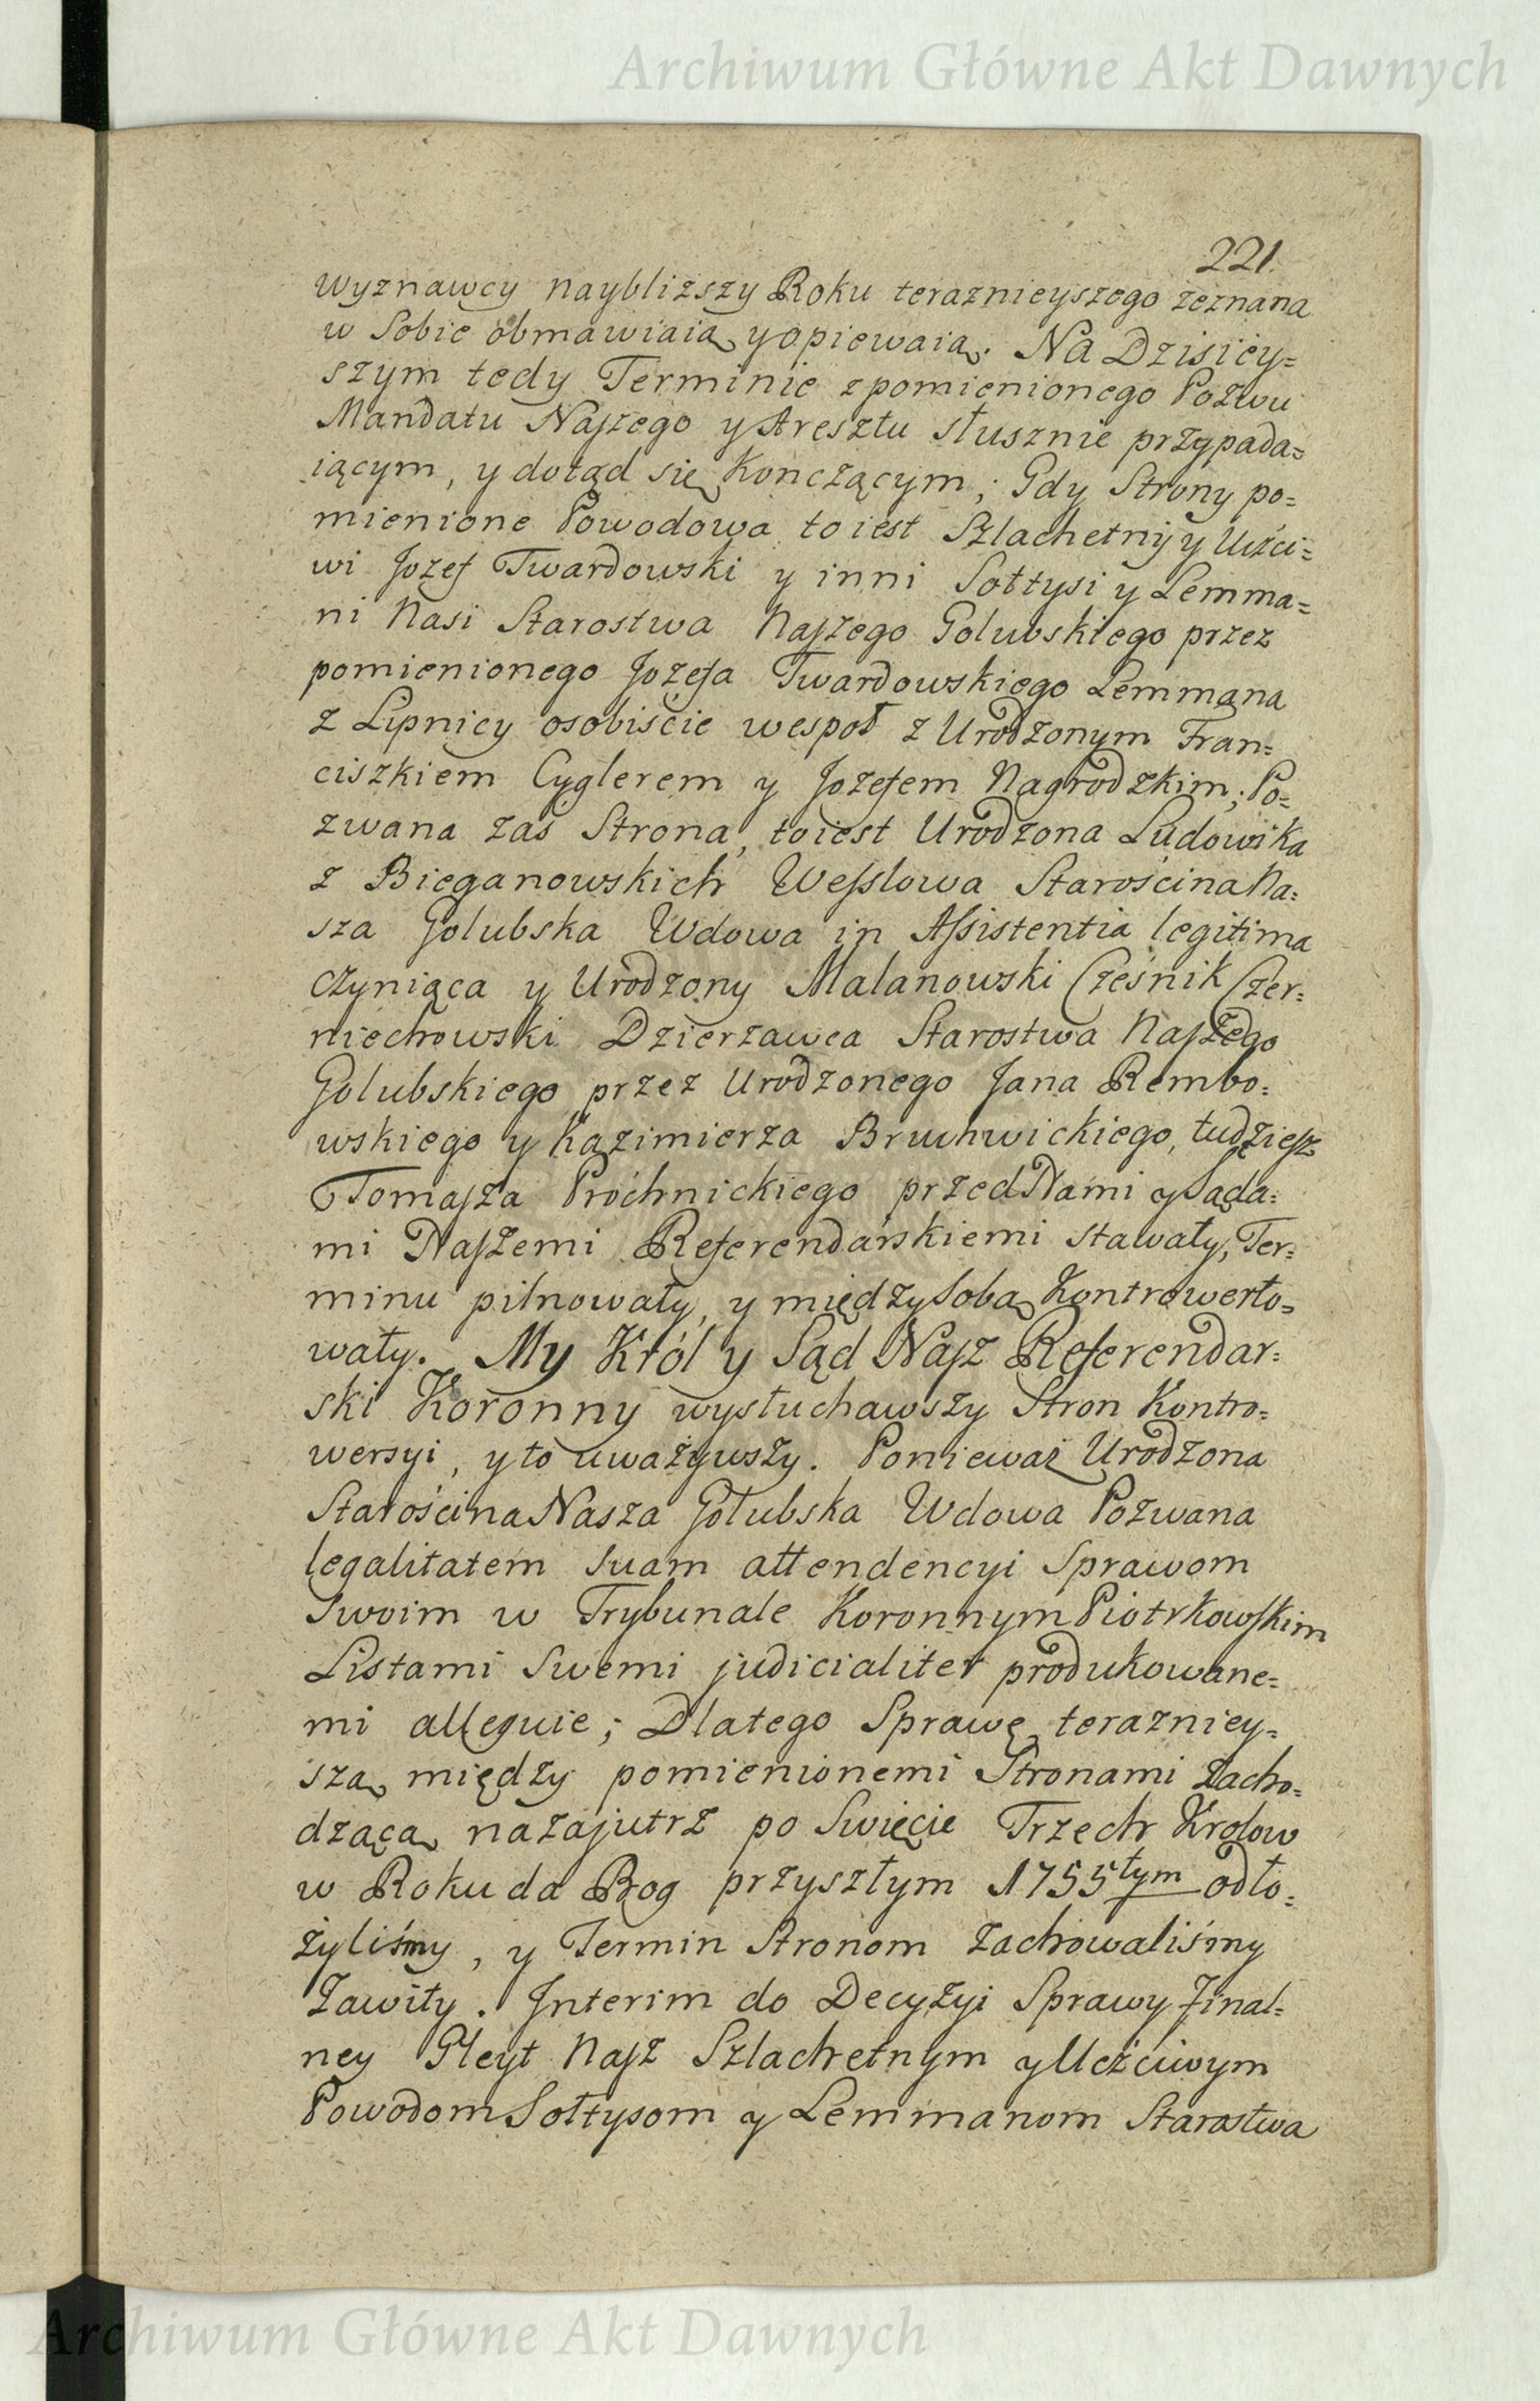 Archiwum Główne Akt Dawnych
221.
wyznawcy naybliższy Roku teraznieyszego zeznana
w Sobie obmawiaią y opiewaią. Na Dzisiey=
szym tedy Terminie z pomienionego Pozwu
Mandatu Naszego y Aresztu słusznie przypada=
iącym, y dotąd się Konczącym; Gdy Strony po=
mienione Powodowa to iest Szlachetny y Uczci=
wi Jozef Twardowski y inni Sołtysi y Lemma=
ni Nasi Starostwa Naszego Golubskiego przez
pomienionego Jozefa Twardowskiego Lemmana
z Lipnicy osobiście wespoł z Urodzonym Fran=
ciszkiem Cyglerem y Jozefem Nagrodzkim; Po=
zwana zaś Strona, to iest Urodzona Ludowika
z Bieganowskich Wesslowa Starościna Na=
sza Golubska Wdowa in Assistentia legitima
czyniąca y Urodzony Malanowski Cześnik Czer=
niechowski Dzierzawca Starostwa Naszego
Golubskiego przez Urodzonego Jana Rembo=
wskiego y Kazimierza Bruchwickiego, tudziesz
Tomasza Próchnickiego przed Nami y Sąda=
mi Naszemi Referendarskiemi stawały, Ter=
minu pilnowały, y między Sobą Kontrowerto=
wały. My Król y Sąd Nasz Referendar=
ski Koronny wysłuchawszy Stron Kontro=
wersyi, y to uważywszy. Ponieważ Urodzona
Starościna Nasza Golubska Wdowa Pozwana
legalitatem suam attendencyi Sprawom
Swoim w Trybunale Koronnym Piotrkowskim
Listami Swemi judicialiter produkowane=
mi alleguie; Dlatego Sprawę terazniey=
szą między pomienionemi Stronami zacho=
dzącą nazajutrz po Swięcie Trzech Krolow
w Roku da Bog przyszłym 1755tym odło=
żyliśmy, y Termin Stronom zachowaliśmy
Zawity. Interim do Decyzyi Sprawy Final=
ney Gleyt Nasz Szlachetnym y Uczciwym
Powodom Sołtysom y Lemmanom Starostwa
Archiwum Główne Akt Dawnych